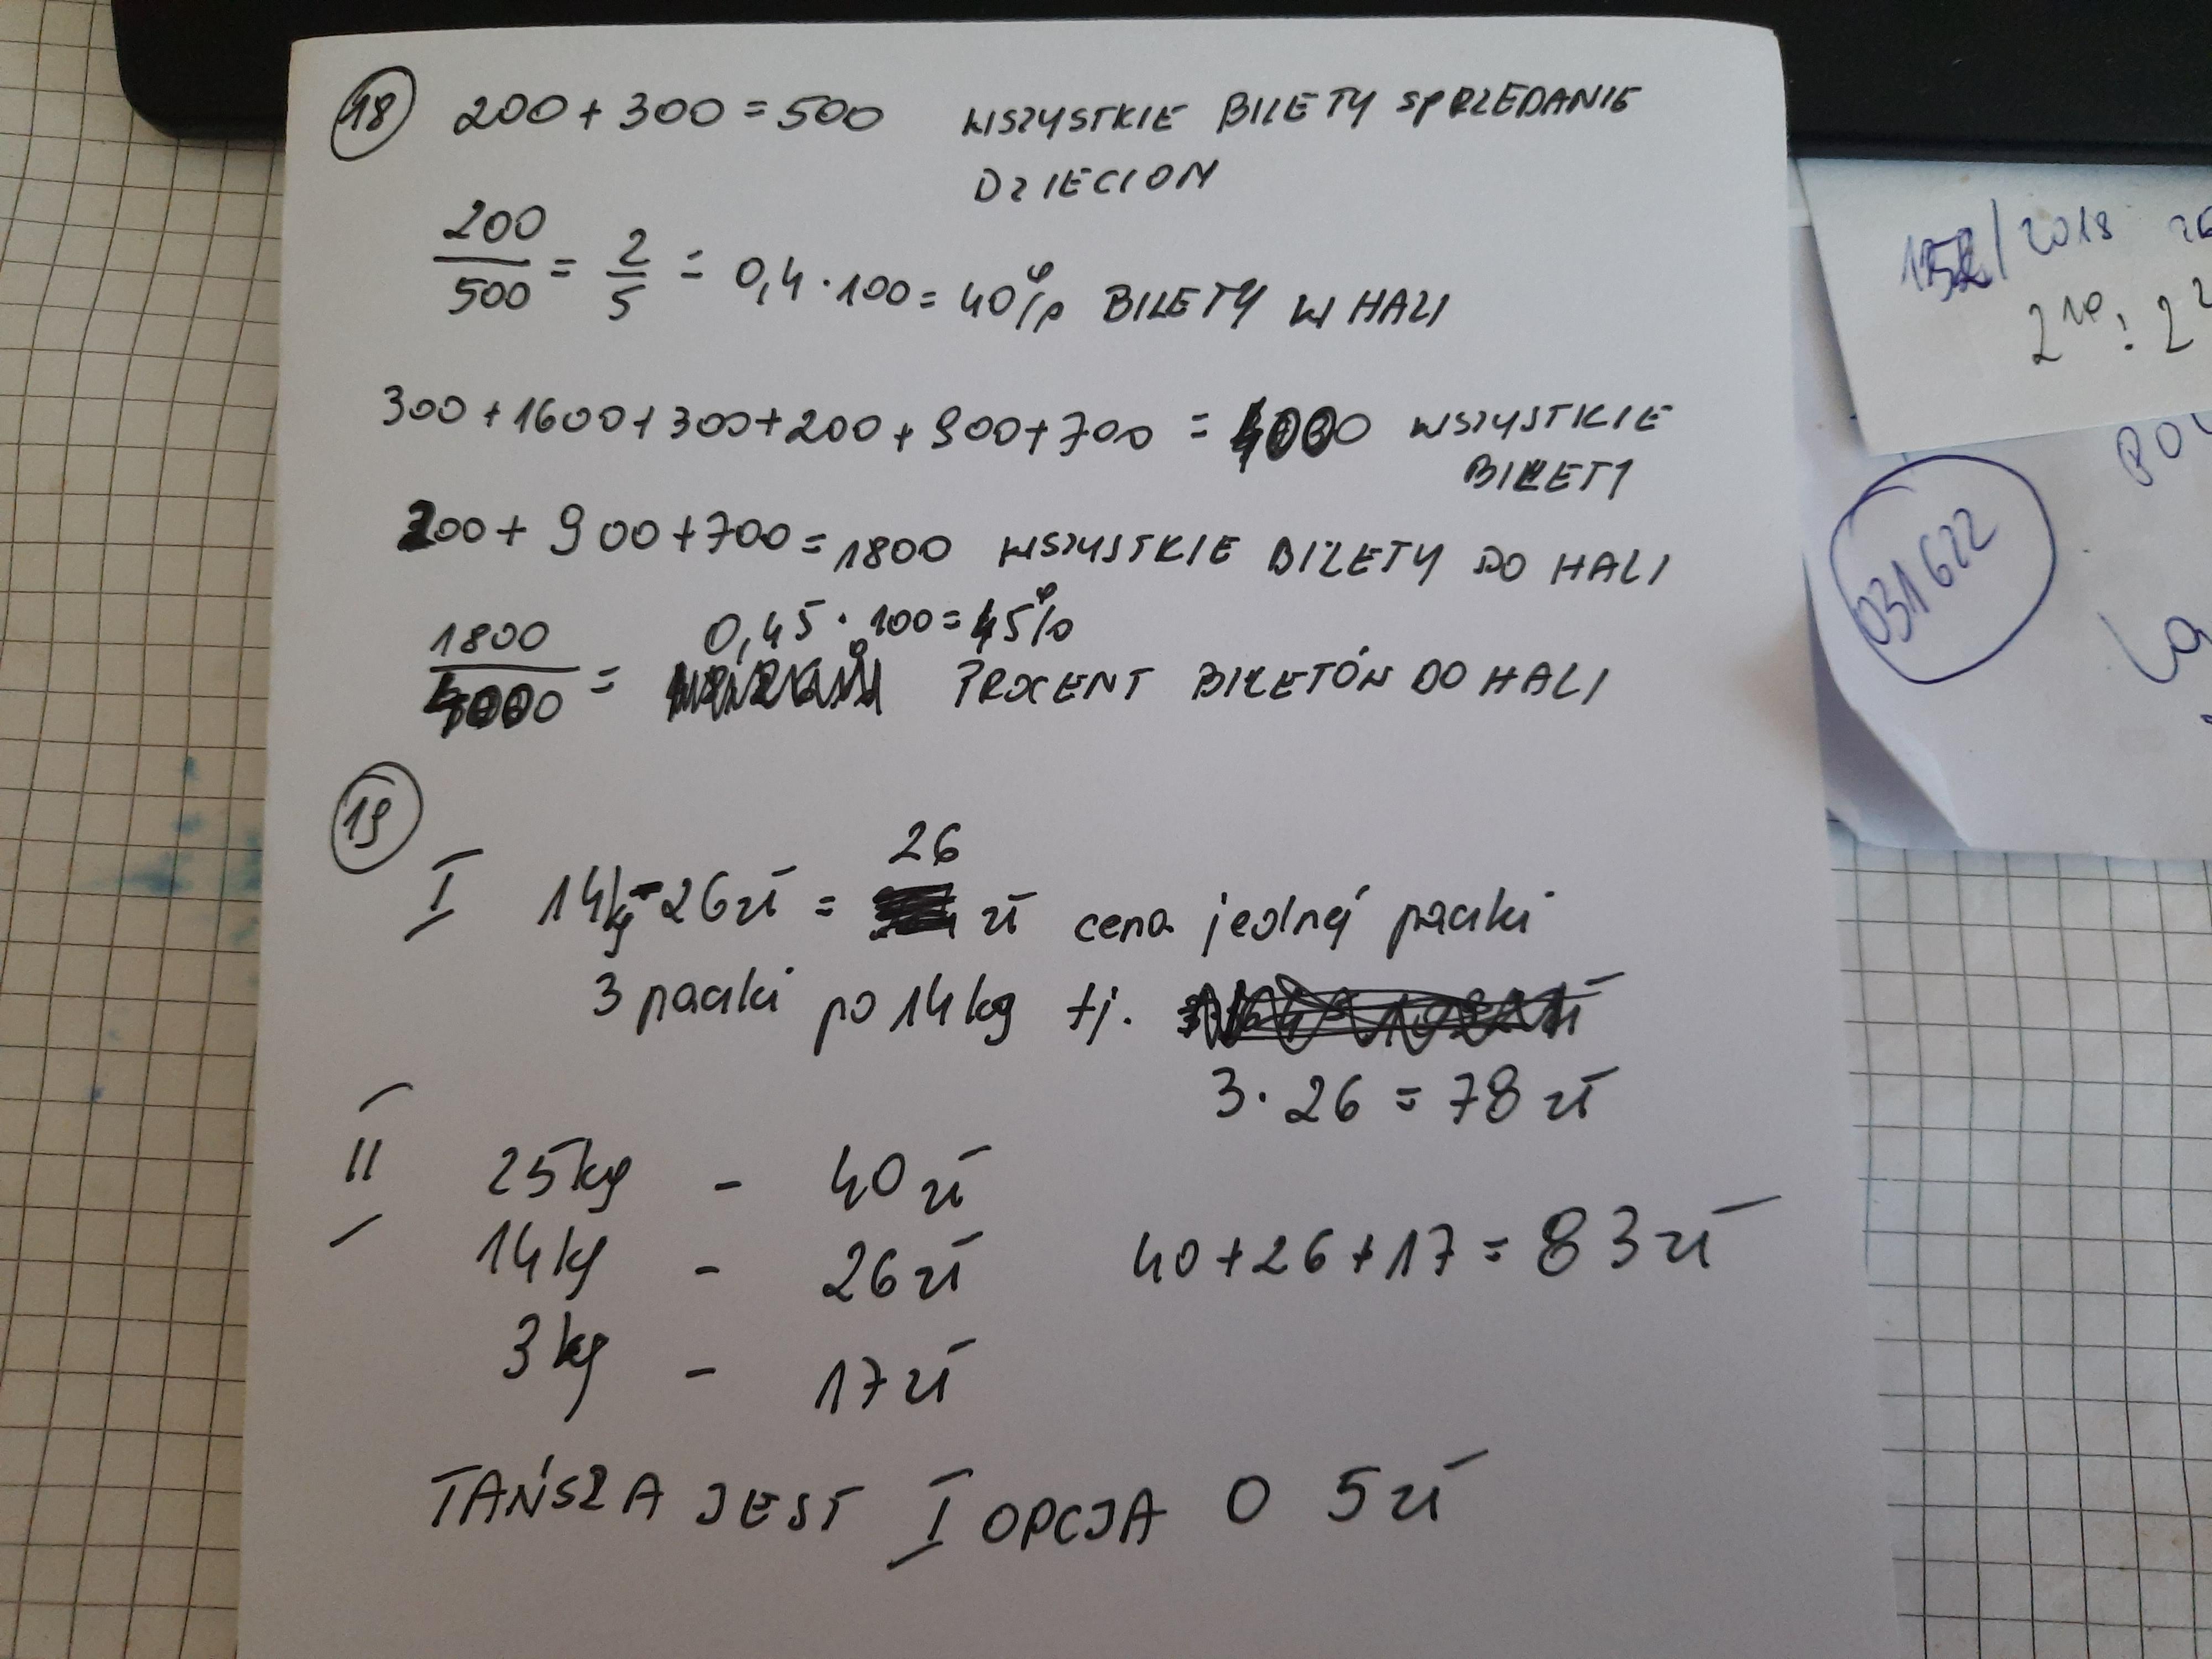 18 200 + 300 = 500 WSZYSTKIE BILETY SPRZEDANIE
DZIECIOM
200/500 = 2/5 = 0,4 · 100 = 40% BILETY W HALI
300 + 1600 + 300 + 200 + 900 + 700 = 4000 WSZYSTKIE
BILETY
200 + 900 + 700 = 1800 WSZYSTKIE BILETY DO HALI
0,45 · 100 = 45%
1800/4000 = PROCENT BILETÓW DO HALI
19
I 14kg - 26 zł = 26 zł cena jednej paczki
3 paczki po 14kg tj.
3 · 26 = 78 zł
II 25kg - 40 zł
14kg - 26 zł 40 + 26 + 17 = 83 zł
3kg - 17 zł
TAŃSZA JEST I OPCJA O 5 zł
2018 26
2¹⁰ : 2²
031622